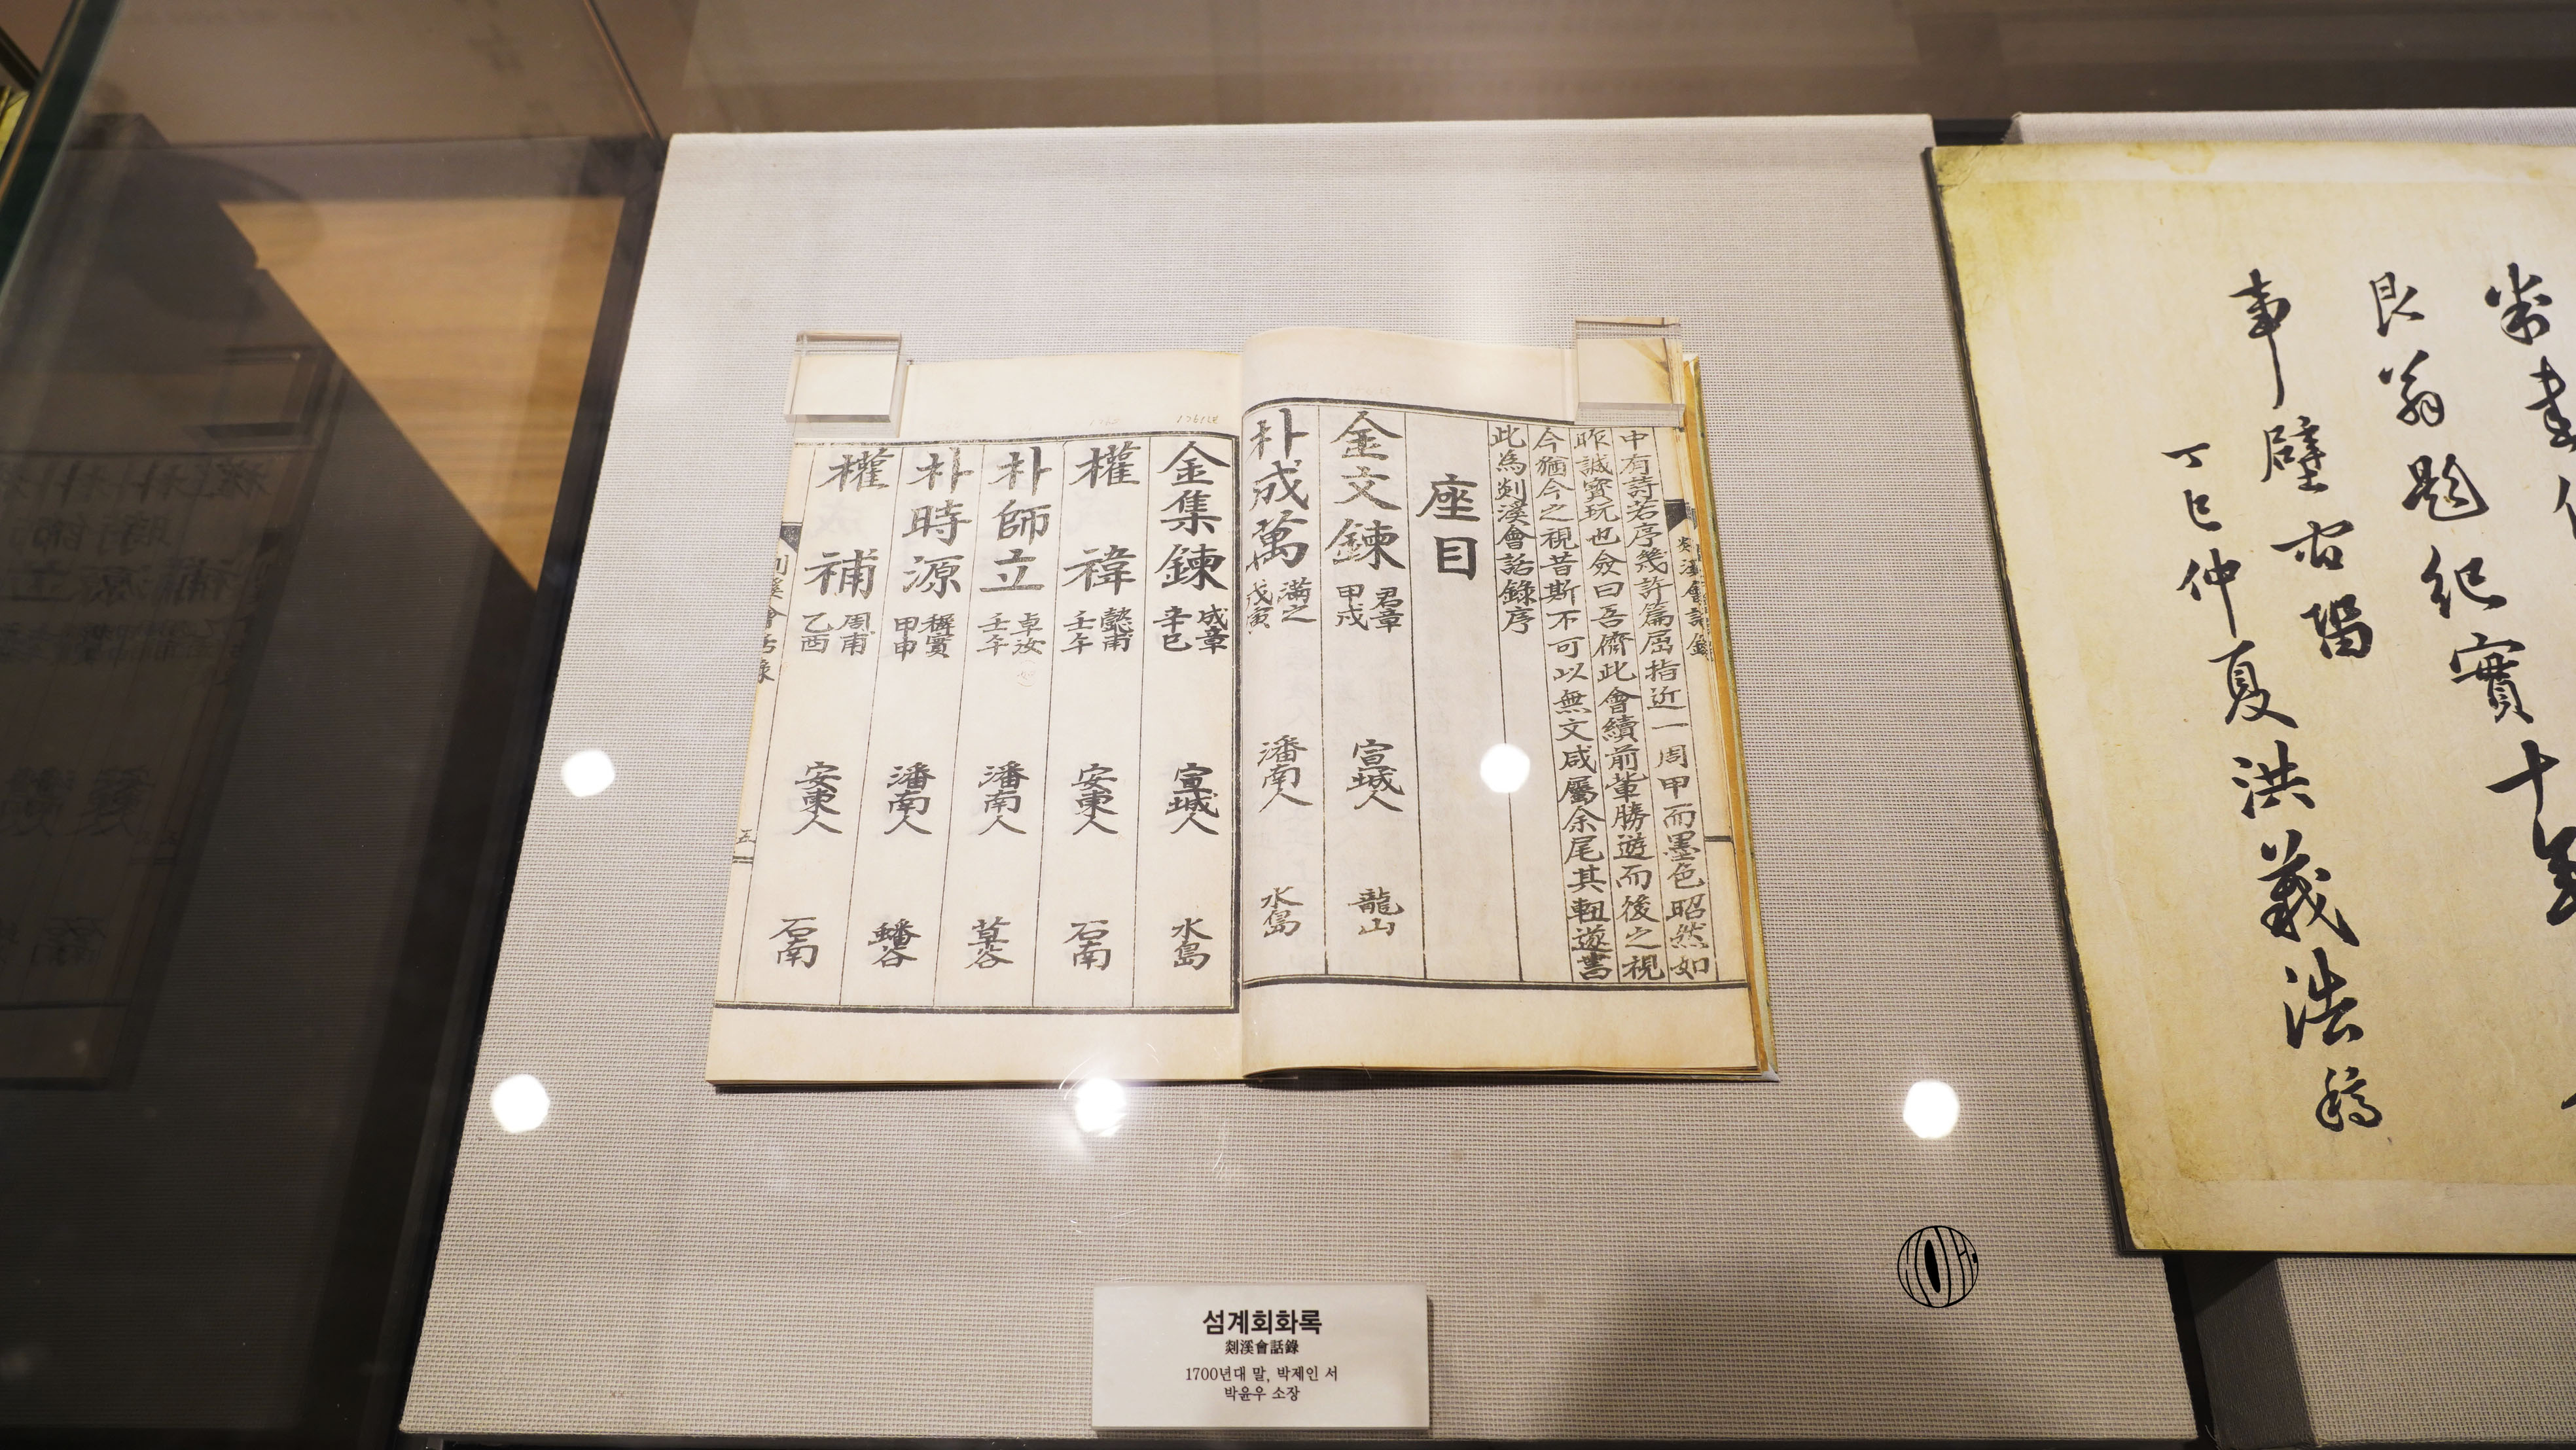 中有詩若序幾許篇屈指近一周甲而墨色昭然如
昨誠寶玩也僉曰吾儕此會續前輩勝遊而後之視
今猶今之視昔斯不可以無文咸屬余尾其軸遂書
此爲剡溪會話錄序
座目
金文鍊 君章 甲戌 宣城人 龍山
朴成萬 滿之 戊寅 潘南人 水島
金集鍊 成章 辛巳 宣城人 水島
權禕 懿甫 壬午 安東人 石南
朴師立 卓汝 壬午 潘南人 草谷
朴時源 穉實 甲申 潘南人 蟠谷
權補 周甫 乙酉 安東人 石南
剡溪會話錄
五
艮翁題紀實
事 壁 右
丁巳仲夏洪義浩稿
섬계회화록
剡溪會話錄
1700년대 말, 박제인 서
박윤우 소장